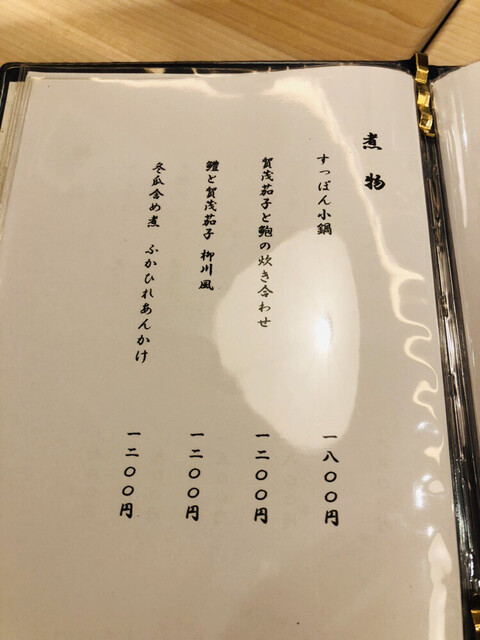 煮物
すっぽん小鍋 一八〇〇円
賀茂茄子と鮑の炊き合わせ 一二〇〇円
鱧と賀茂茄子 柳川風 一二〇〇円
冬瓜含め煮 ふかひれあんかけ 一二〇〇円